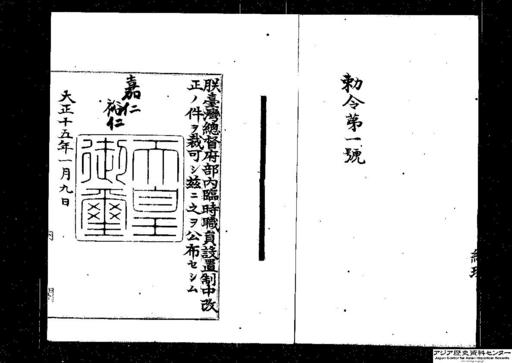 勅令第一號
朕臺灣總督府部內臨時職員設置制中改
正ノ件ヲ裁可シ茲ニ之ヲ公布セシム
嘉仁
裕仁
天皇
御璽
大正十五年一月九日
內閣
アジア歴史資料センター
Japan Center for Asian Historical Records